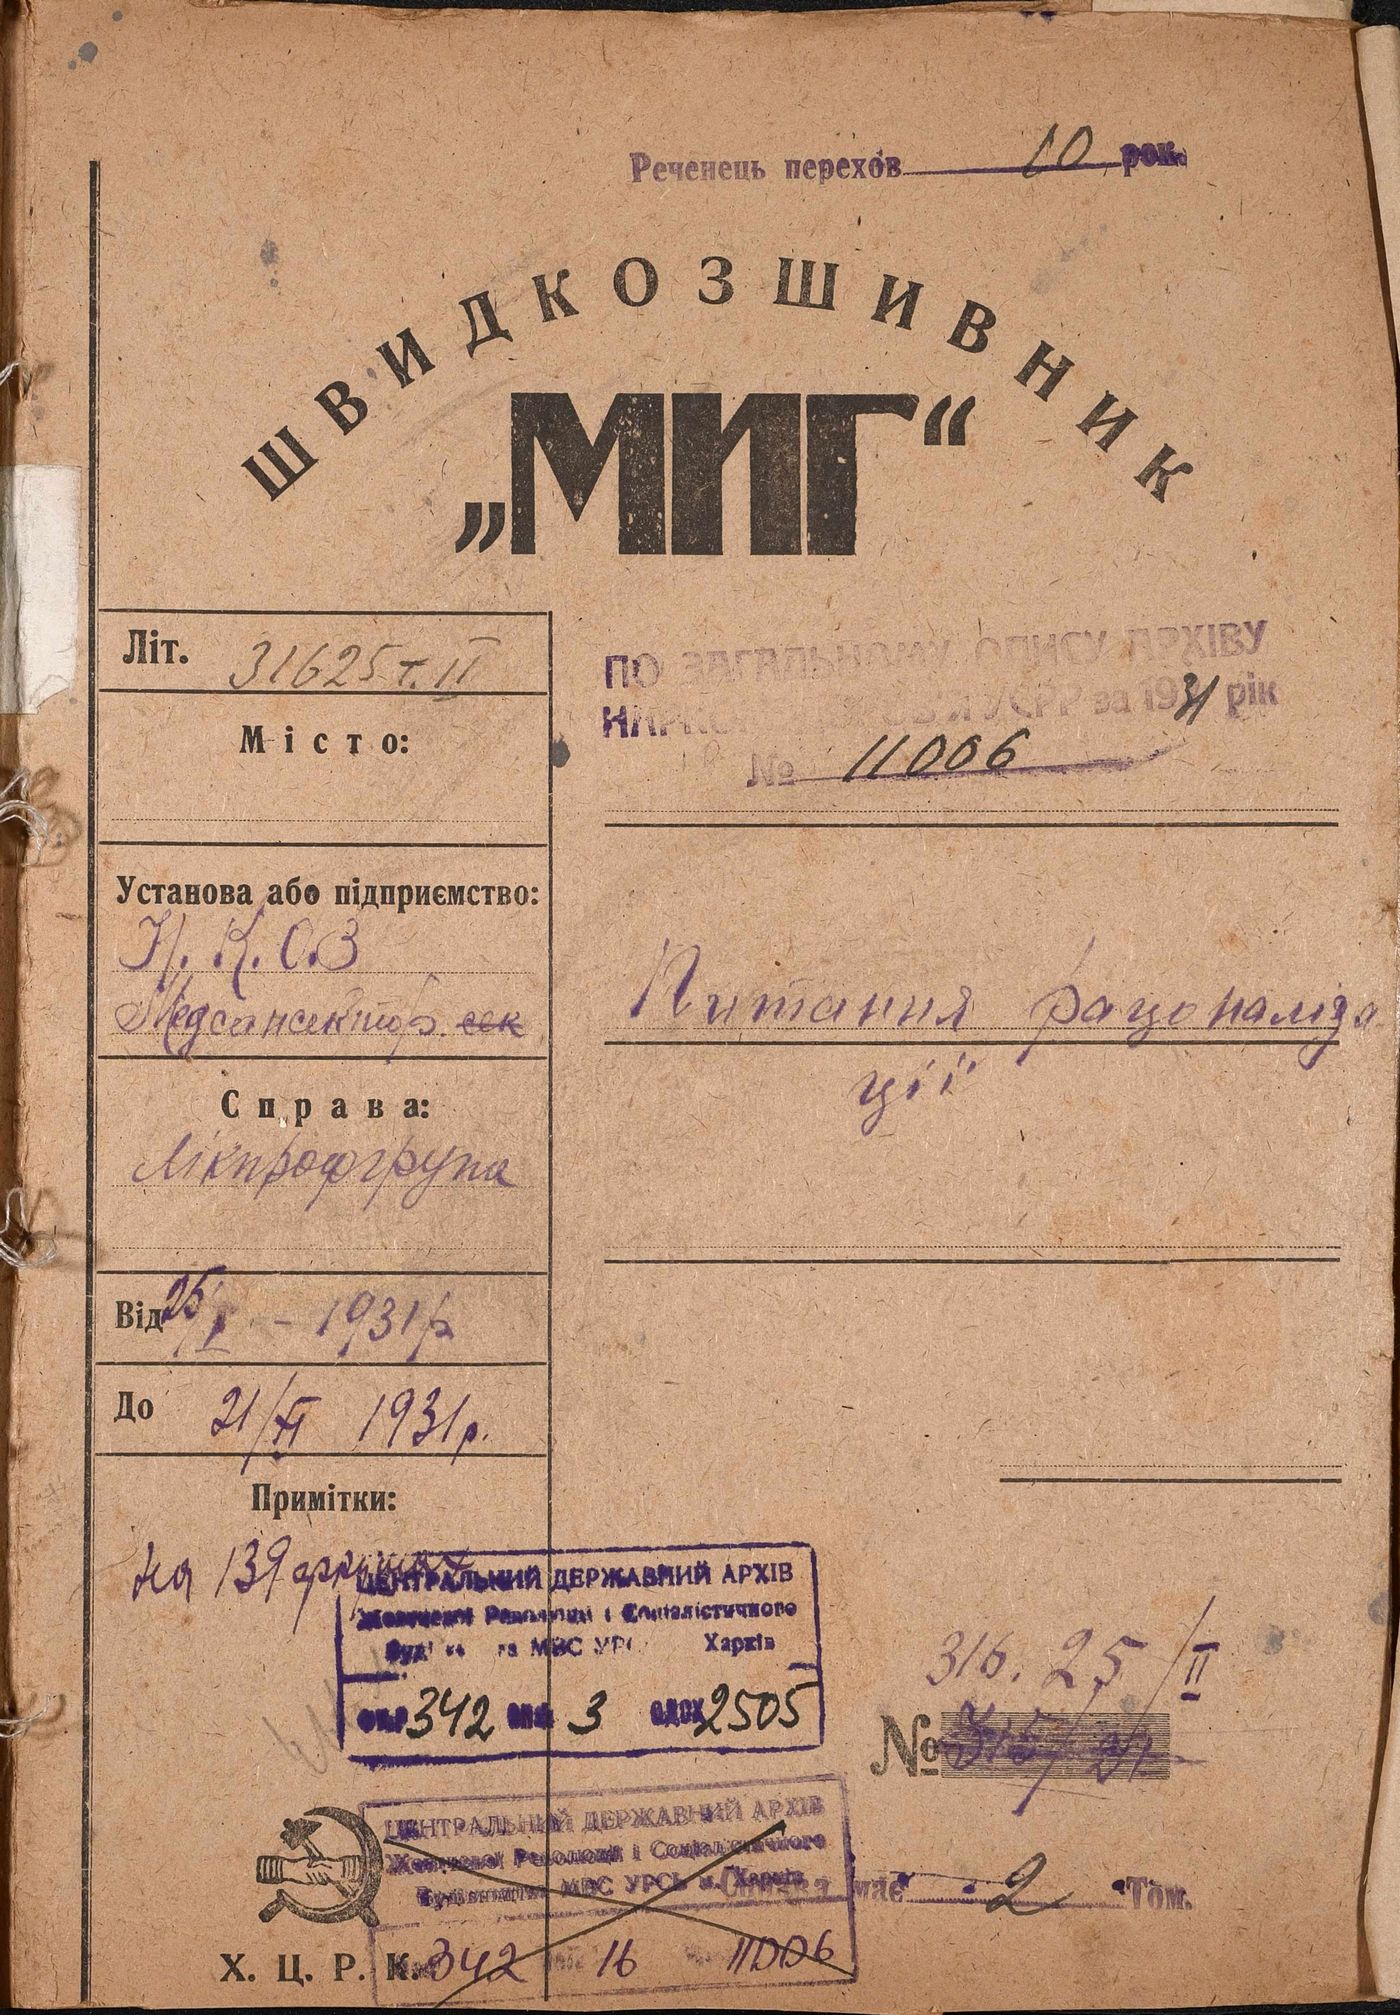 Реченець перехов 10 рок.
ШВИДКОЗШИВНИК
„МИГ“
Літ. 31625 т. II
ПО ЗАГАЛЬНОМУ ОПИСУ АРХІВУ
УСРР за 1931 рік
№ 11006
Місто:
Установа або підприємство:
Н. К. О. З
Медсансектор сек
Питання раціоналіза
ції
Справа:
Лікпрофгрупа
Від 25/I - 1931 р
До 21/XI 1931 р.
Примітки:
на 139 аркушах
ЦЕНТРАЛЬНИЙ ДЕРЖАВНИЙ АРХІВ
Жовтневої Революції і Соціалістичного
та МВС УРС Харків
ФОНД 342 ОПИС 3 ОД.ЗХ 2505
316.25/II
№ 315/31
ЦЕНТРАЛЬНИЙ ДЕРЖАВНИЙ АРХІВ
Жовтневої Революції і Соціалістичного
Будівництва МВС УРСР м. Харків
342 16 11006
Справа має 2 Том.
Х. Ц. Р. К.